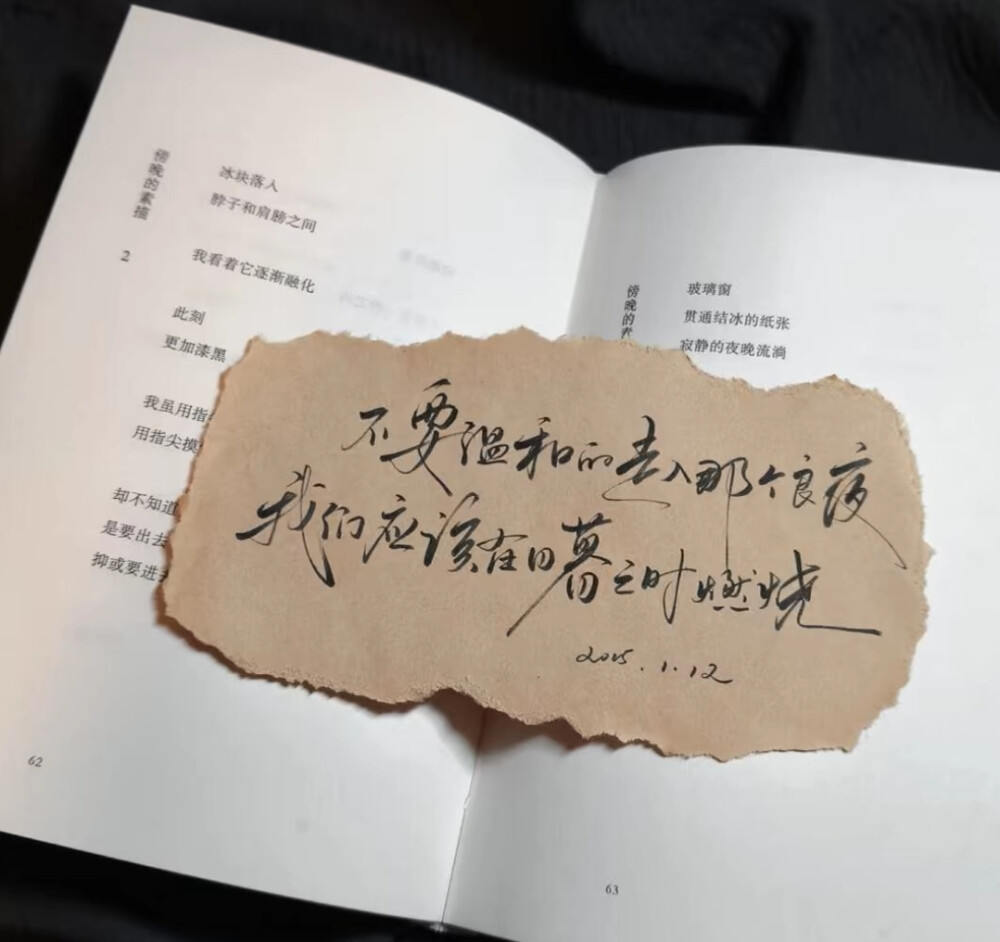 傍晚的素描
2
冰块落入
脖子和肩膀之间
我看着它逐渐融化
此刻
更加漆黑
我虽用指
用指尖摸
却不知道
是要出去
抑或要进
62
傍晚的
玻璃窗
贯通结冰的纸张
寂静的夜晚流淌
不要温和的走入那个良夜
我们应该在日暮之时燃烧
2025.1.12
63